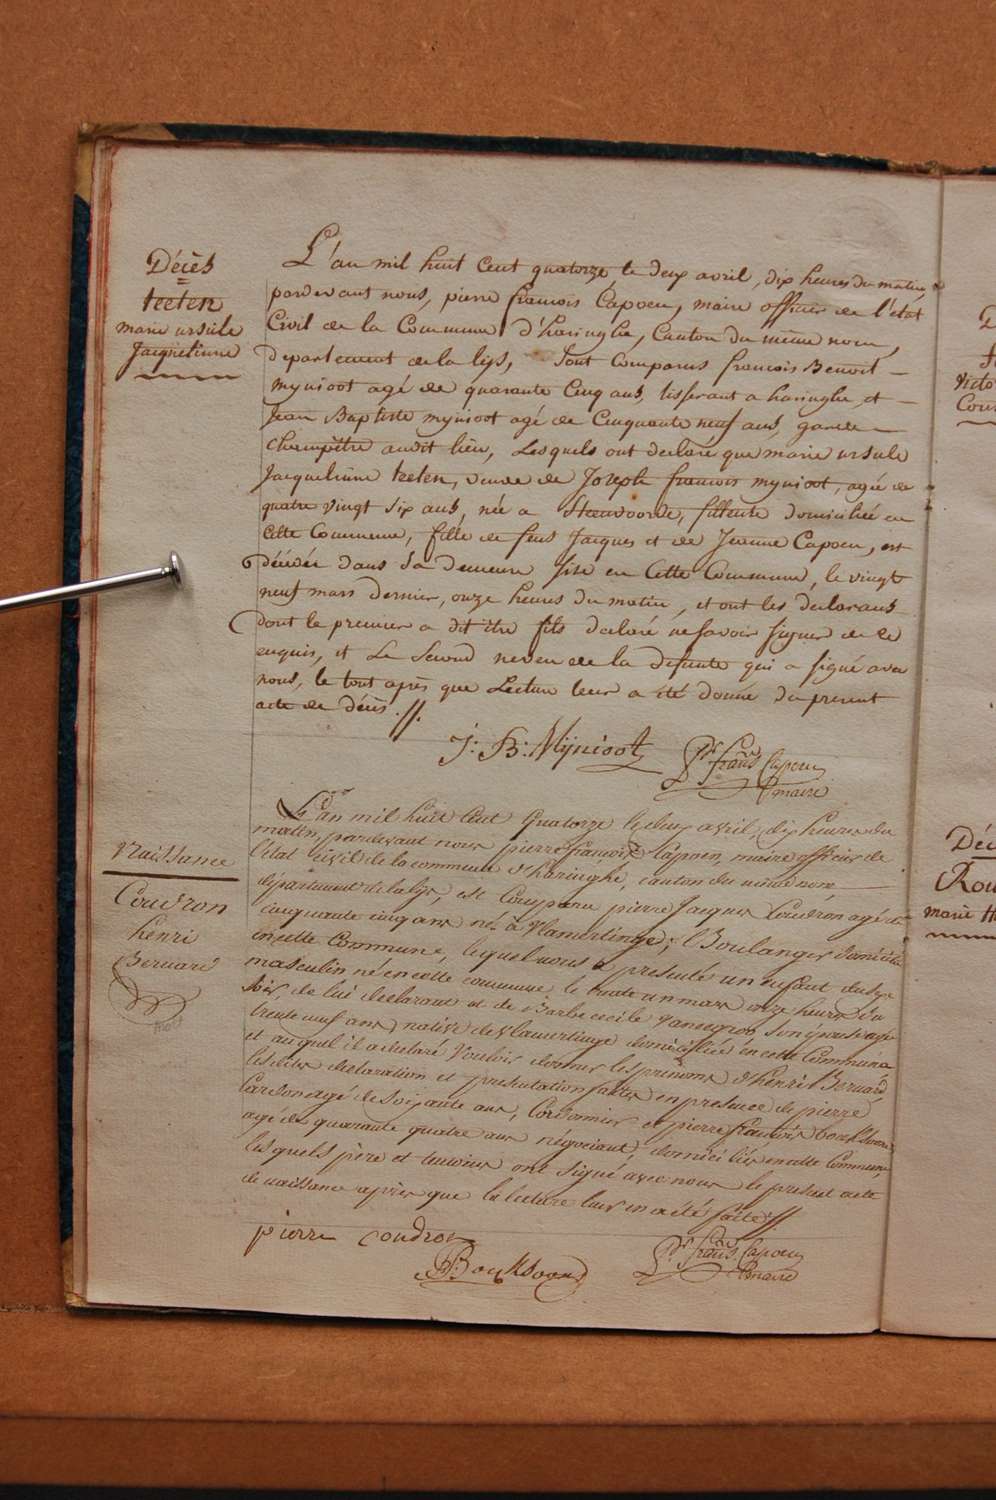 Décès
teeten
marie ursule
Jacqueline
L'an mil huit cent quatorze le deux avril, dix heures du matin,
pardevant nous, pierre francois Capoen, maire officier de l'état
Civil de la Commune d'haringhe, Canton du même nom,
département de la lijs, Sont comparus francois Benoit
mynioot agé de quarante Cinq ans, tisserant a haringhe, et
Jean Baptiste mynioot agé de Cinquante neuf ans, garde
champêtre audit lieu, Lesquels ont declaré que marie ursule
Jacqueline teeten, veuve de Joseph francois mynioot, agée de
quatre vingt six ans, née a Steenvoorde, fileuse domiciliée en
cette Commune, fille de feus Jacques et de Jeanne Capoen, est
décédée dans sa demeure sise en Cette Commune, le vingt
neuf mars dernier, onze heures du matin, et ont les declarans
dont le premier a dit être fils declaré ne savoir signer de ce
enquis, et Le Second neveu de la defunte qui a signé avec
nous, le tout après que Lecture leur a été donné du present
acte de décès.
J: B: Mÿnioot
Pre frans Capoen
maire
Naissance
Coudron
henri
Bernard
L'an mil huit Cent quatorze le deux avril, dix heures du
matin, pardevant nous pierre francois Capoen, maire officier de
l'état civil de la commune d'haringhe, canton du même nom
département de la lys, est comparu pierre Jacques Coudron agé de
cinquante cinq ans né à Vlamertinge, Boulanger domicilié
en cette Commune, lequel nous a presenté un enfant du sexe
masculin né en cette commune le trente un mars onze heures du
soir, de lui declarant et de Barbe cecile son épouse agée
trente neuf ans, native de vlamertinge domiciliée en cette Commune
et auquel il a declaré vouloir donner les prénoms d'henri Bernard
les dites declaration et presentation faites en presence de pierre
Cardon agé de soixante ans, Cordonnier et pierre francois bouckson
agé de quarante quatre ans négociant, domiciliés en cette Commune,
les quels père et temoins ont signé avec nous le present acte
de naissance après que la lecture leur en a été faite.
pierre coudron
Pre frans Capoen
maire